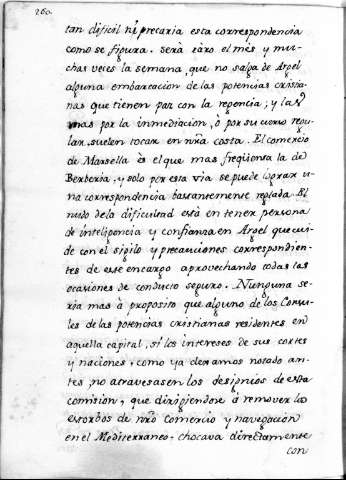 260.
tan dificil ni precaria esta correspondencia
como se figura. Será raro el mes y mu-
chas veces la semana, que no salga de Argel
alguna embarcacion de las potencias cristia-
nas que tienen paz con la regencia; y las
mas por la inmediacion, ò por su curso regu-
lar, suelen tocar en nr̃a costa. El comercio
de Marsella es el que mas freqüenta la de
Berberia, y solo por esta via se puede lograr u-
na correspondencia bastantemente reglada. El
nudo de la dificultad está en tener persona
de inteligencia y confianza en Argel que cui-
de con el sigilo y precauciones correspondien-
tes de este encargo aprovechando todas las
ocasiones de conducto seguro. Ninguna se-
ria mas à proposito que alguno de los Consu-
les de las potencias cristianas residentes en
aquella capital, si los intereses de sus cortes
y naciones, como ya dexamos notado an-
tes, no atravesasen los designios de esta
comision, que dirigiendose à remover los
estorbos de nr̃o comercio y navegacion
en el Mediterraneo, chocava directamente
con